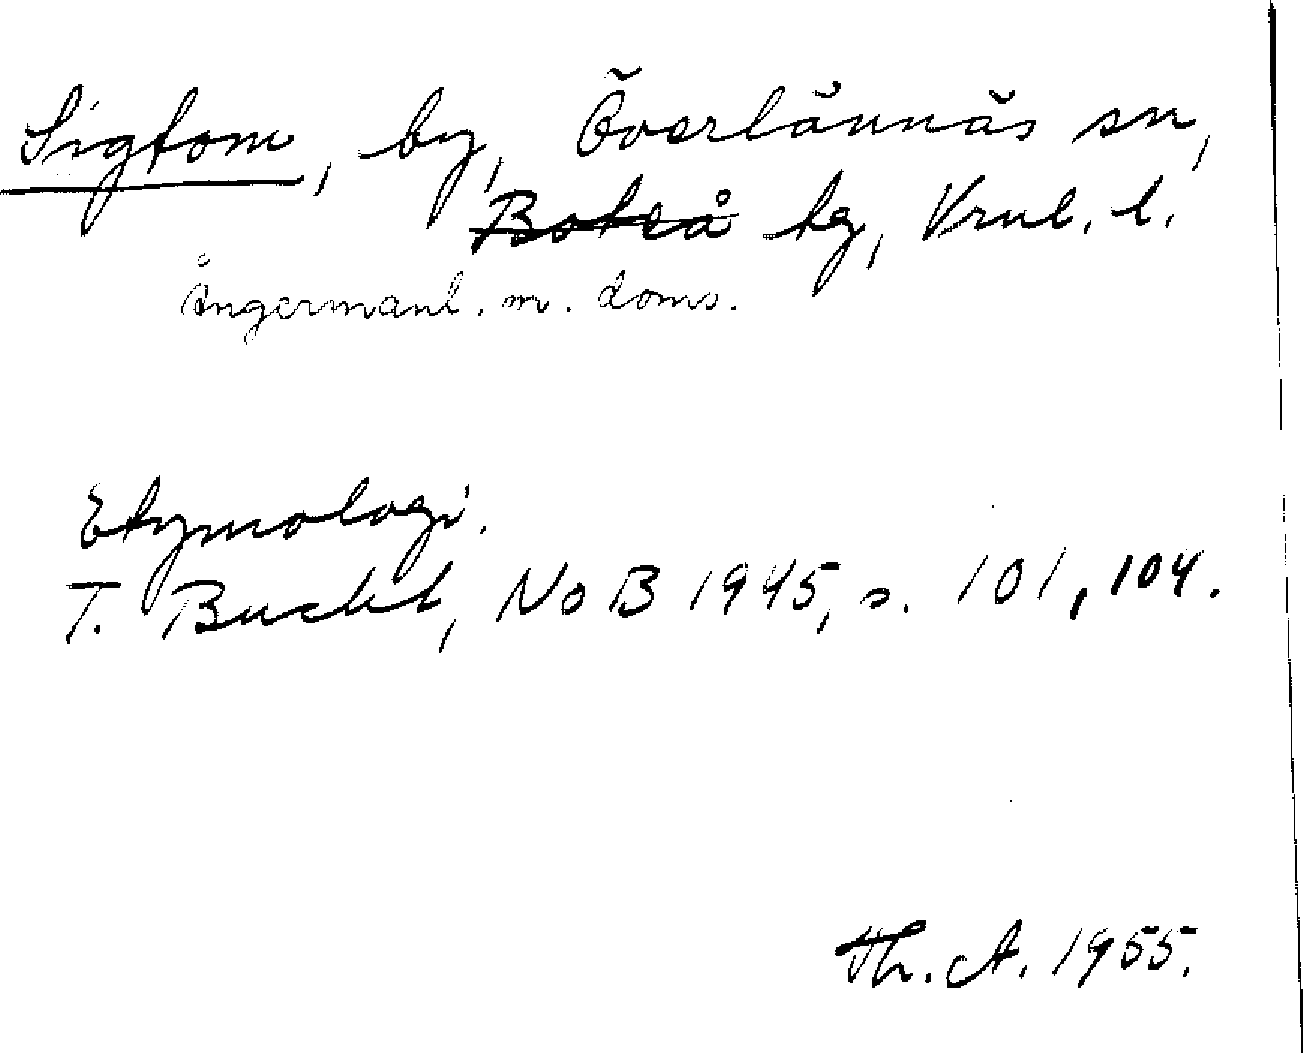 Sigtom, by, Överlännäs sn,
Boteå hg, Vrnl. l.
Ångermanl. m. doms.
Etymologi.
T. Bucht, NoB 1945, s. 101, 104.
Th. A. 1955.